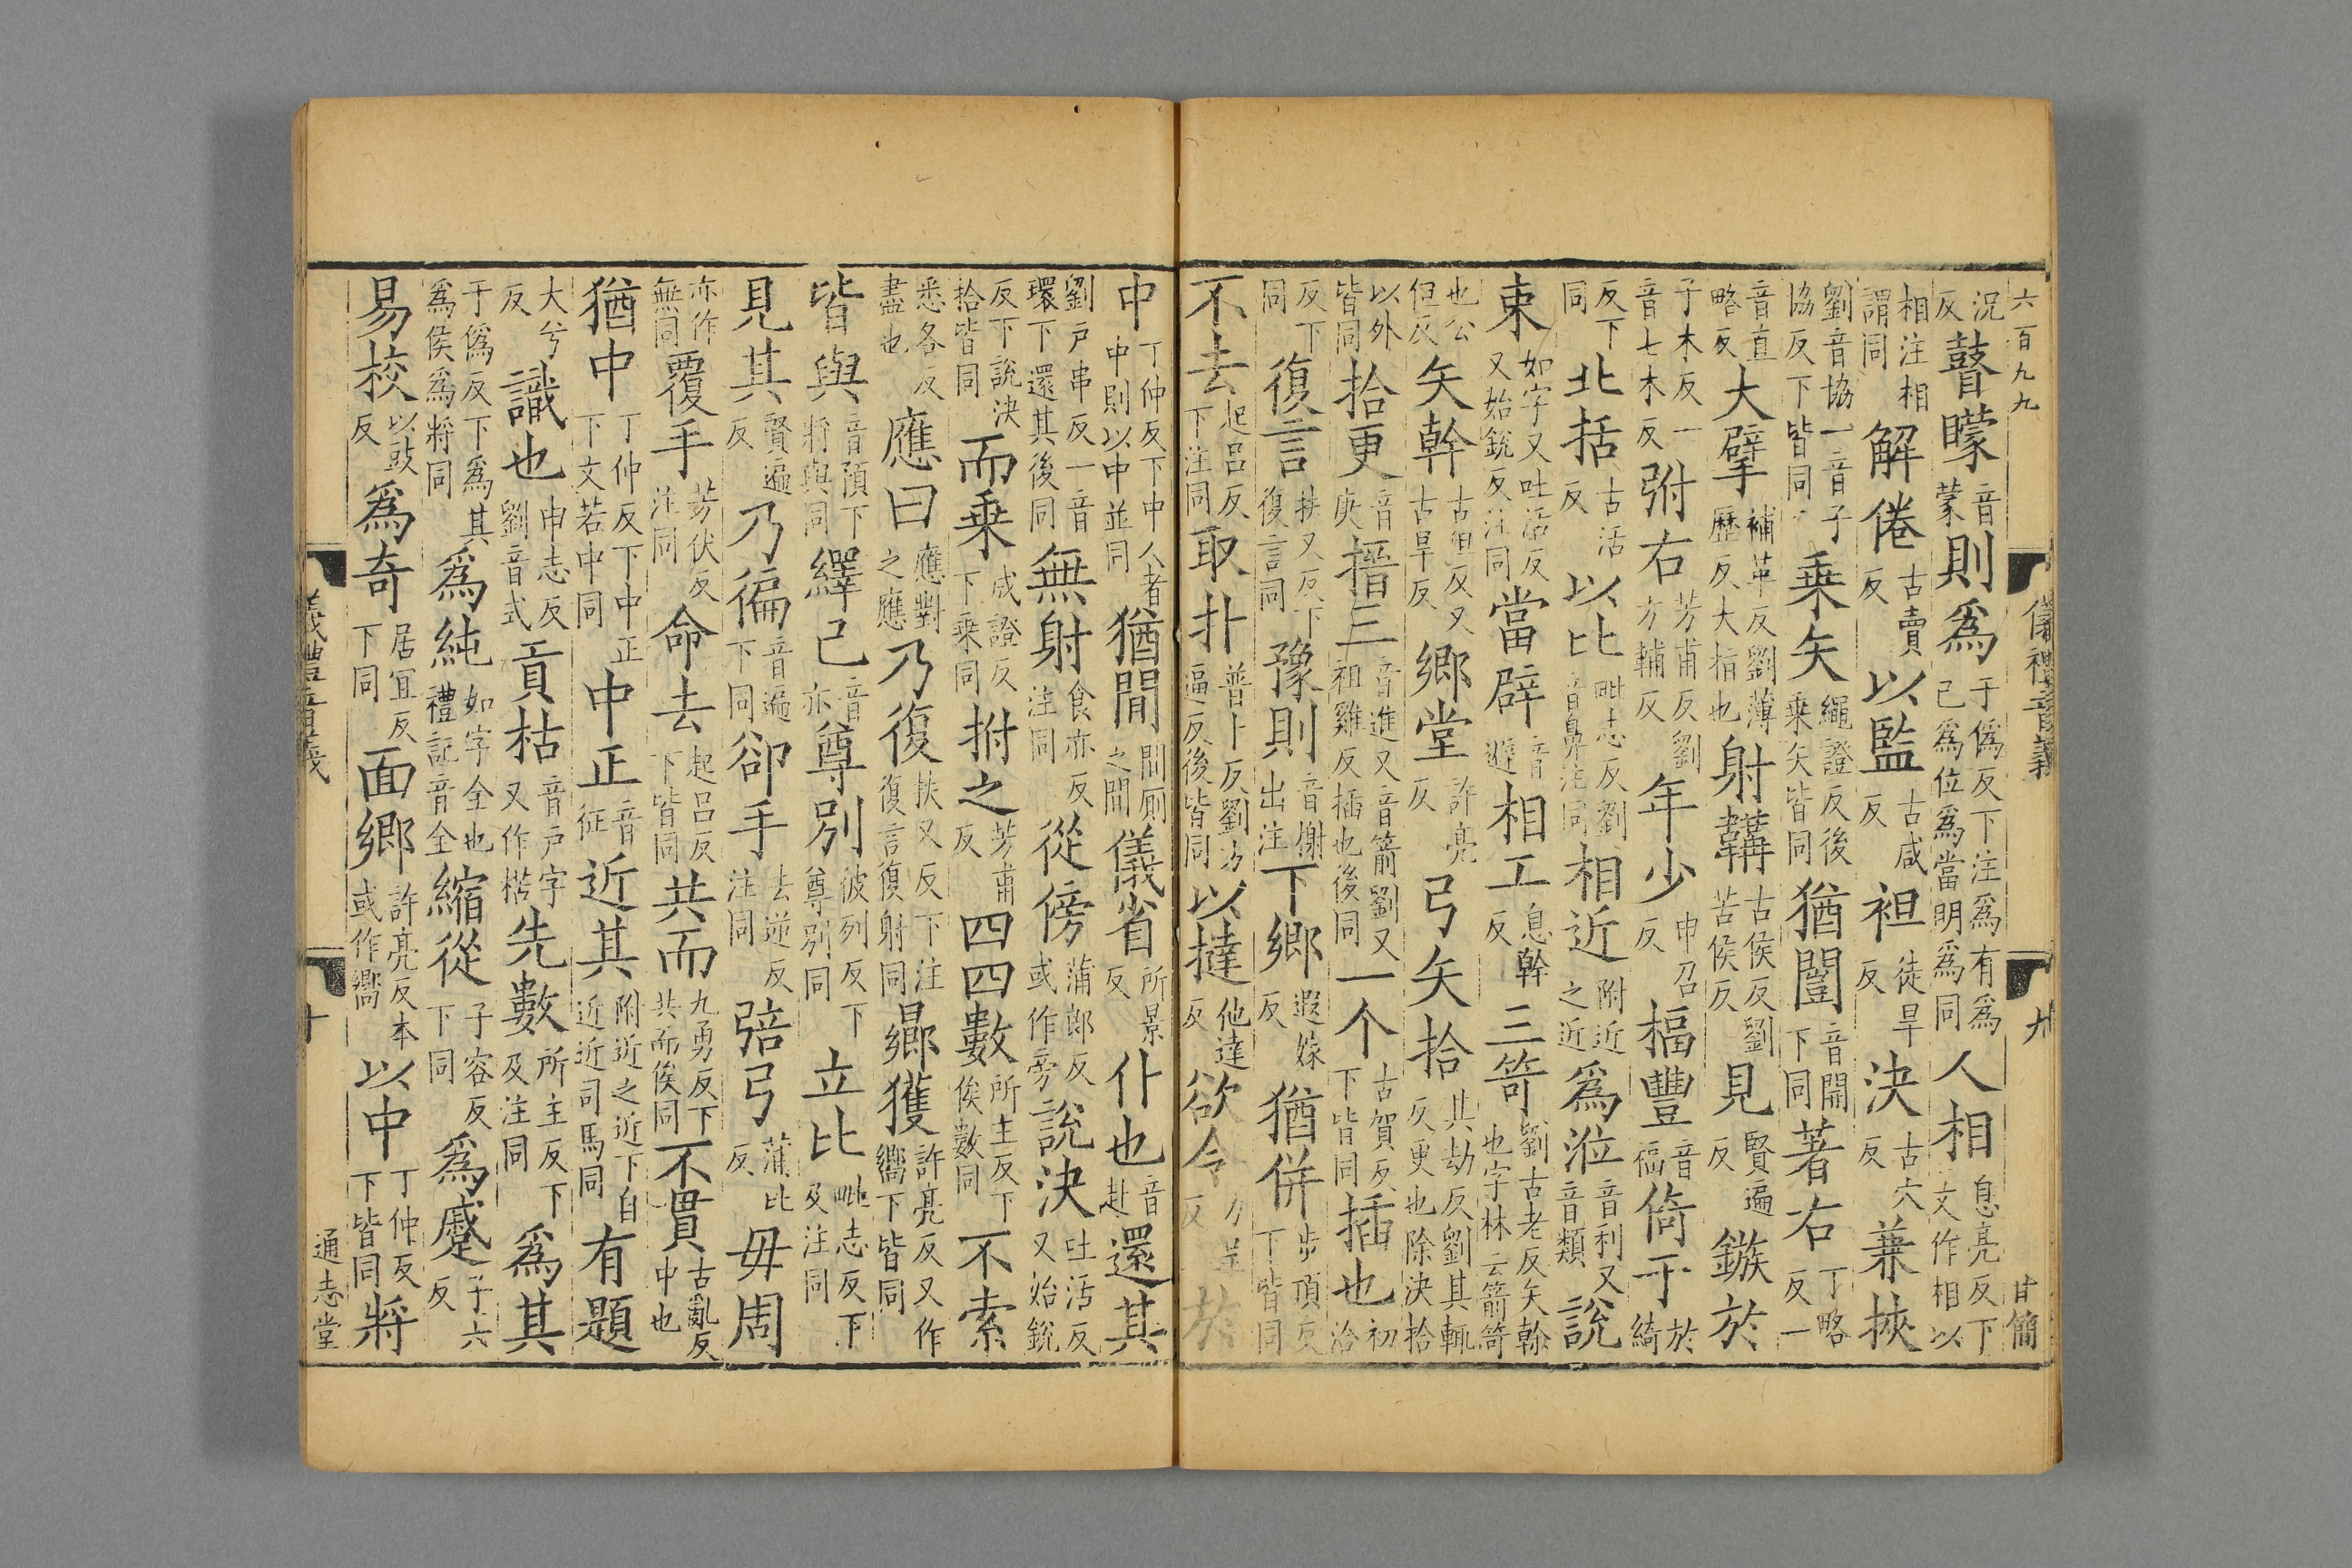 六百九九 儀禮音義 九 甘簡
況反瞽矇音蒙則爲于僞反下注爲有爲己爲位爲當明爲同人相息亮反下文作相以
相注相謂同解倦古賣反以監古咸反袒徒旱反決古穴反蒹挾
劉音協一音子協反下皆同乗矢繩證反後乗矢皆同猶闓音開下同著右丁略反一
音直略反大擘補革反劉薄歷反大指也射韝古侯反劉苦侯反見賢遍反鏃於
子木反一音七木反弣右芳甫反劉方輔反年少申召反楅豐音福倚于於綺
反下同北括古活反以比毗志反劉音鼻注同相近附近之近爲涖音利又音類說
束如字又吐活反又始銳反注同當辟音避相工息亮反三笴劉古老反矢幹也字林云箭笴
也公但反矢幹古但反又古旱反鄉堂許亮反弓矢拾其劫反劉其輒反更也除決拾
以外皆同拾更音庚搢三音進又音箭劉又祖雞反插也後同一个古賀反下皆同插也初洽
反下同復言扶又反下復言同豫則音榭出注下鄉遐嫁反猶併步頂反下皆同
不去起呂反下注同取扑普卜反劉方逼反後皆同以撻他達反欲令力呈反於
中丁仲反下中人者中則以中並同猶閒閒厠之閒儀省所景反仆也音赴還其
劉戶串反一音環下還其後同無射食亦反注同從傍蒲郎反或作旁說決吐活反又始銳
反下說決拾皆同而乗成證反下乗同拊之芳甫反四四數所主反下俟數同不索
悉各反盡也應曰應對之應乃復扶又反下注復言復射同鄉獲許亮反又作嚮下皆同
皆與音預下將與同繹己音亦尊別彼列反下尊別同立比毗志反下及注同
見其賢遍反乃徧音遍下同卻手去逆反注同弣弓蒲比反毋周
亦作無同覆手芳伏反注同命去起呂反下皆同共而九勇反下共而俟同不貫古亂反中也
猶中丁仲反下中正下文若中同中正音征近其附近之近下自近近司馬同有題
大兮反識也申志反劉音式貢枯音戶字又作楛先數所主反下及注同爲其
于僞反下爲其爲侯爲將同爲純如字全也禮記音全縮從子容反下同爲蹙子六反
易校以豉反爲奇居宜反下同面鄉許亮反本或作嚮以中丁仲反下皆同將
儀禮音義 十 通志堂